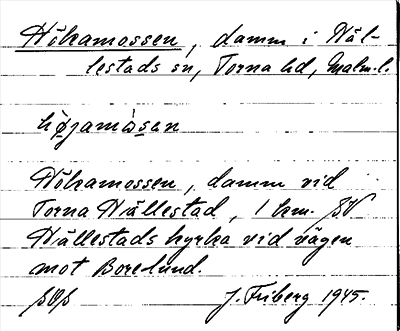 Hökamossen, damm i Häl-
lestads sn, Torna hd, Malm.l.
højamåsan
Hökamossen, damm vid
Torna Hällestad, 1 km. SV
Hällestads kyrka vid vägen
mot Borelund.
J. Friberg 1945.